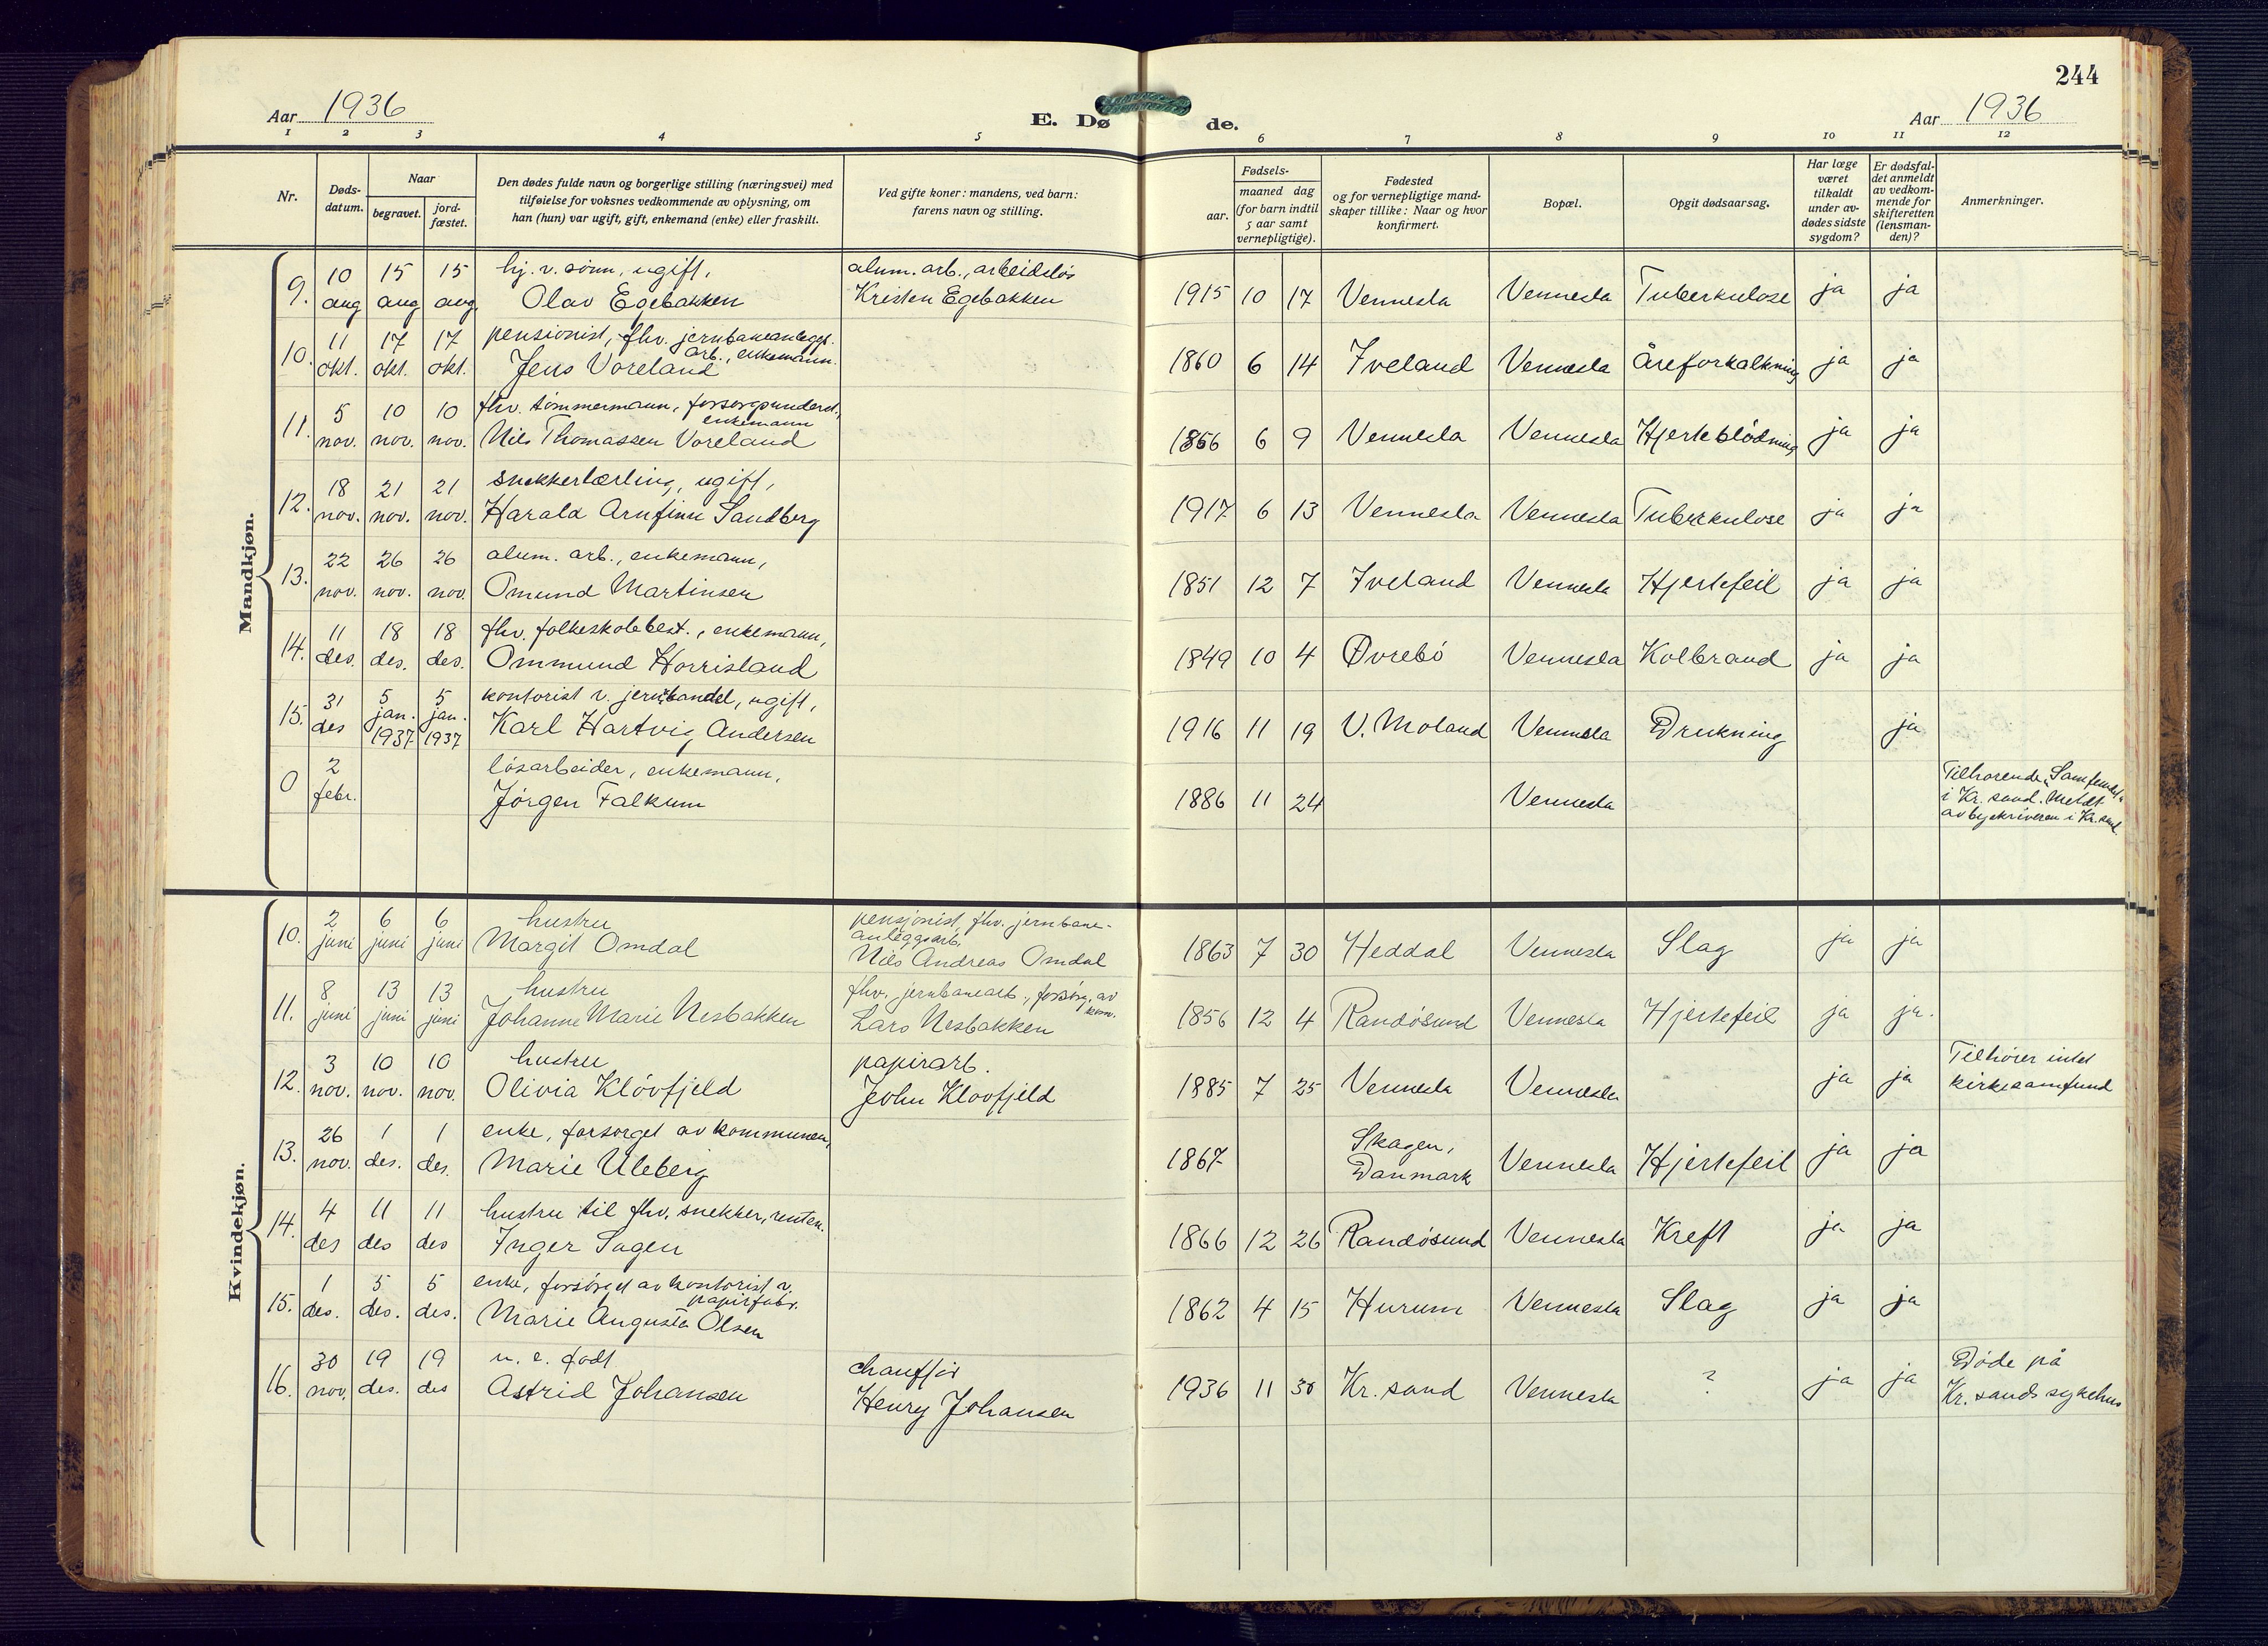 244
Aar 1936
E. Dø de.
Aar 1936
1 2 3 4 5 6 7 8 9 10 11 12
Nr.
Døds-
datum.
Naar
begravet.
jord-
fæstet.
Den dødes fulde navn og borgerlige stilling (næringsvei) med
tilføielse for voksnes vedkommende av oplysning, om
han (hun) var ugift, gift, enkemand (enke) eller fraskilt.
Ved gifte koner: mandens, ved barn:
farens navn og stilling.
Fødsels-
aar.
maaned dag
(for barn indtil
5 aar samt
vernepligtige).
Fødested
og for vernepligtige mand-
skaper tillike: Naar og hvor
konfirmert.
Bopæl.
Opgit dødsaarsag.
Har læge
været
tilkaldt
under av-
dødes sidste
sygdom?
Er dødsfal-
det anmeldt
av vedkom-
mende for
skifteretten
(lensman-
den)?
Anmerkninger.
Mandkjøn.
10 15 15 hj. v. sønn, ugift, alum. arb., arbeidsløs
9. aug aug aug Olav Egebakken Kristen Egebakken 1915 10 17 Vennesla Vennesla Tuberkulose ja ja
11 17 17 pensionist, fhv. jernbaneanleggs.
arb., enkemann.
10. okt. okt. okt. Jens Voreland 1860 6 14 Iveland Vennesla Åreforkalkning ja ja
5 10 10 fhv. tömmermann, forsorgsunderst.,
enkemann
11. nov. nov. nov. Nils Thomassen Voreland 1856 6 9 Vennesla Vennesla Hjerteblødning ja ja
18 21 21 snekkerlærling, ugift,
12. nov. nov. nov. Harald Arnfinn Sandberg 1917 6 13 Vennesla Vennesla Tuberkulose ja ja
22 26 26 alum. arb., enkemann,
13. nov. nov. nov. Omund Martinsen 1851 12 7 Iveland Vennesla Hjertefeil ja ja
11 18 18 fhv. folkeskolebest., enkemann,
14. des. des. des. Ommund Horrisland 1849 10 4 Øvrebö Vennesla Kolbrand ja ja
31 5 5 kontorist v. jernhandel, ugift,
15. des jan. 1937 jan. 1937 Karl Hartvig Andersen 1916 11 19 V. Moland Vennesla Drukning ja
2 løsarbeider, enkemann,
0 febr. Jörgen Falkum 1886 11 24 Vennesla
Tilhørende "Samfundet"
i Kr. sand. Meldt
av byskriveren i Kr. sand.
Kvindekjøn.
2 6 6 hustru pensjonist, fhv. jernbane-
anleggsarb.
10. juni juni juni Margit Omdal Nils Andreas Omdal 1863 7 30 Heddal Vennesla Slag ja ja
8 13 13 hustru fhv. jernbanearb., forsörg. av
kom.
11. juni juni juni Johanne Marie Nesbakken Lars Nesbakken 1856 12 4 Randösund Vennesla Hjertefeil ja ja.
3 10 10 hustru papirarb.
12. nov. nov. nov. Olivia Klövfjeld John Klovfjeld 1885 7 25 Vennesla Vennesla ja ja
Tilhører intet
kirkesamfund
26 1 1 enke, forsorget av kommunen,
13. nov. des. des. Marie Uleberg 1867 Skagen,
Danmark Vennesla Hjertefeil ja ja
4 11 11 hustru til fhv. snekker, renten.
14. des des des Inger Sagen 1866 12 26 Randösund Vennesla Kreft ja ja
1 5 5 enke, forsörget av kontorist v.
papirfabr.
15. des. des. des. Marie Augusta Olsen 1862 4 15 Hurum Vennesla Slag ja ja
30 19 19 u. e. født chauffør
16. nov. des. des Astrid Johansen Henry Johansen 1936 11 30 Kr. sand Vennesla ? ja ja
Døde på
Kr. sands sykehus